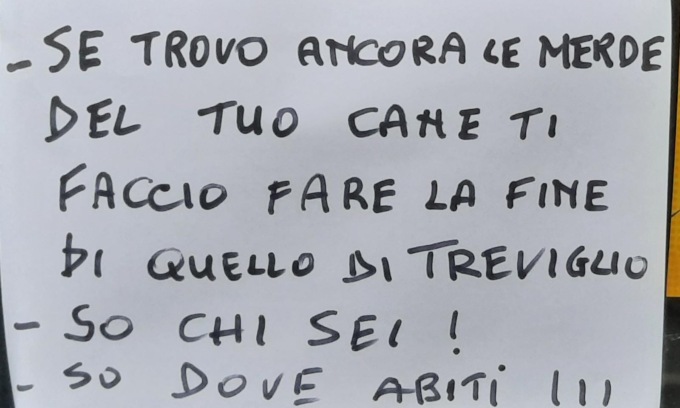 - SE TROVO ANCORA LE MERDE
DEL TUO CANE TI
FACCIO FARE LA FINE
DI QUELLO DI TREVIGLIO
- SO CHI SEI !
- SO DOVE ABITI !!!